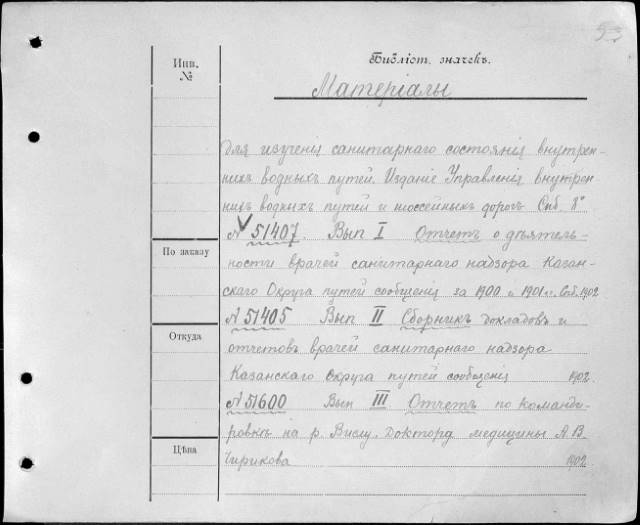 53
Инв.
№
Библіот. значекъ.
Матеріалы
для изученія санитарнаго состоянія внутрен-
нихъ водныхъ путей. Изданіе Управленія внутрен-
нихъ водныхъ путей и шоссейныхъ дорогъ Спб. 8°
№ 51407 Вып I Отчетъ о дѣятель-
По заказу
ности врачей санитарнаго надзора Казан-
скаго Округа путей сообщенія за 1900 и 1901 г. Спб. 1902
№ 51405 Вып II Сборникъ докладовъ и
Откуда
отчетовъ врачей санитарнаго надзора
Казанскаго округа путей сообщенія 1902
№ 51600 Вып III Отчетъ по команди-
ровкѣ на р. Вислу. Доктора медицины А. В.
Цѣна
Чирикова 1902